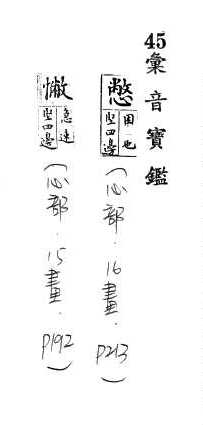 45彙音寶鑑
憋 困也 堅四邊 (心部．16畫．P213)
急速 堅四邊 (心部．15畫．P192)